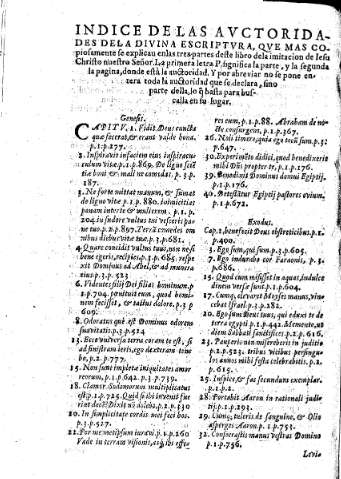 INDICE DE LAS AVCTORIDA-
DES DELA DIVINA ESCRIPTVRA, QVE MAS CO
piosamente se explican enlas tres partes deste libro dela imitacion de Iesu
Christo nuestro Señor. La primera letra P. significa la parte, y la segunda
la pagina, donde está la auctoridad. Y por abreviar no se pone en
tera toda la auctoridad que se declara, sino
parte della, lo q̃ basta para bus
calla en su lugar.
Genesis.
CAPITV. 1. Vidit Deus cuncta
quæ fecerat, & erant valde bona.
p.1.p.177.
2. Inspiravit in faciem eius spiraculum
vitæ p.1. De ligno scien
tiæ boni & mali ne comedas. p.3.p.
187.
3. Ne forte mittat manum, & sumat
de ligno vitæ p.1.p.880. Inimicitias
ponam inter te & mulierem. p.1.p.
204. In sudore vultus tui vesceris pa-
ne tuo p.2.p.897. Terra comedes om
nibus diebus vitæ tuæ. p.3.p.681.
4. Quare concidit vultus tuus, non ne si
bene egeris, recipies. p.1.p.685. respe
xit Dominus ad Abel, & ad munera
eius p.3.p.523
6. Videntes filij Dei filias hominum p.
1.p.704. pœnituit eum, quod homi-
nem fecisset, & tactus dolore. p.3.p
609.
8. Odoratus que est Dominus odorem
suavitatis p.3.p.524
13. Ecce universa terra coram te est, si
ad sinistram ieris, ego dexteram tene
be, p.2.p.777.
15. Non sunt impletæ iniquitates amor
reorum, p.1.p.642. p.3.p.739.
18. Clamor Sodomorum multiplicatus
est p.1.p.725.
20. In simplicitate cordis mei feci hoc
p.3.p.527.
22. Per me metipsum iuravi. p.1.p.260
Vade in terram visionis, atq; ibi offe
res eum, p.1.p.88. Abraham de no-
cte consurgens. p.1.p.367.
26. Noli timere, quia ego tecum sum. p.3.
p.647.
30. Experimento didici, quod benedixerit
mihi Deus propter te, p.1.p.
39. Benedixit Dominus domui Egyptij.
p.1.p.176.
40. Egyptij pastores ovium.
p.1.p.672.
Exodus.
Cap. 1. benefecit Deus obstetricibus. p.1.
p.400.
3. Ego sum, qui sum. p.3.p.605.
4. Ego indurabo cor Faraonis, p.3.
p.686.
15. Quod cum misisset in aquas, in dulce
dinem versæ sunt. p.1.p.240.
17. Cumq; levaret Moyses manus, vince
bat Israel p.3.p.282.
20. Ego sum Deus tuus, qui eduxi te de
terra egypti p.1.p.442. Memento, ut
diem Sabbati sanctifices. p.2.p.616.
23. Pauperis non misereberis in iudicio
p.2.p.523. tribus vicibus persingu-
los annos mihi festa celebrabitis, p.2.
p.615.
25. Inspice, & fac secundum exemplar.
p.1.p.2.
28. Portabit Aaron in rationali iudi-
tij. p.1.p.293.
29. Cumq; tuleris de sanguine, & Oleo
asperges Aaron. p.1.p.753.
32. Consecrastis manus vestras Domino
p.1.p.756.
Levis